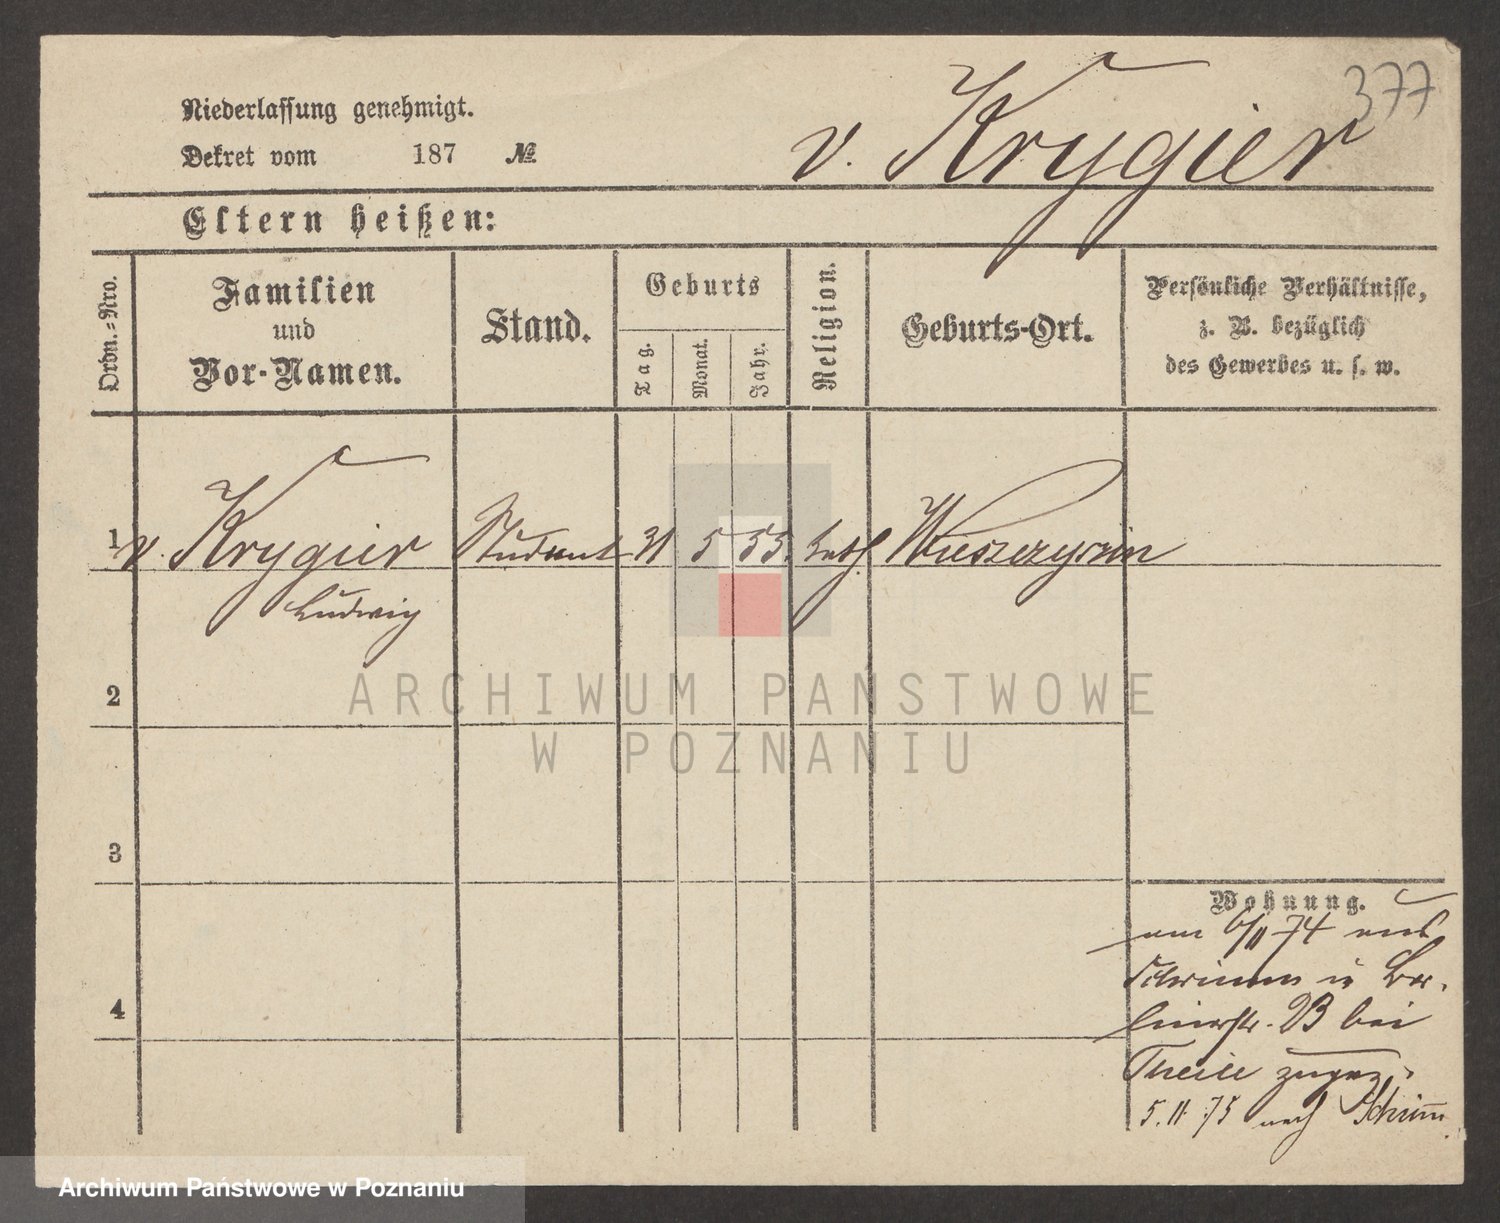 377
v. Krygier
Niederlassung genehmigt.
Dekret vom 187 №
Eltern heißen:
Ordn.-Nro.
Familien
und
Vor-Namen.
Stand.
Geburts
Tag.
Monat.
Jahr.
Religion.
Geburts-Ort.
Persönliche Verhältnisse,
z. B. bezüglich
des Gewerbes u. s. w.
1 v. Krygier Student 31 5 55. kath
Ludwig
2
3
4
Wohnung.
am 6/11 74 aus
Schrimm in Ber-
linerstr. 23 bei
Theile zugez.
5.11.75 nach Schrimm
ARCHIWUM PAŃSTWOWE
W POZNANIU
Archiwum Państwowe w Poznaniu